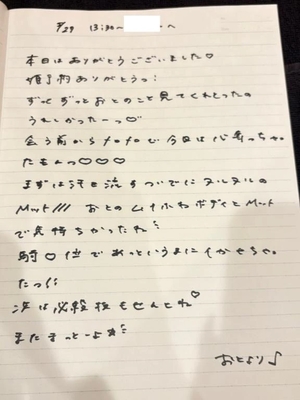 9/29 13:30〜 へ
本日はありがとうございました♡
婚予約ありがとうっ!
ずっとずっとおとのこと見てくれとったの
うれしかったーっ♡
会う前からトークで今日は心奪っちゃ
たもんっ♡♡♡
まずは汗を流すついでにヌルヌルの
Mット/// おとのムチふわボディとMット
で気持ちかったね
騎♡位であっというまにイかせちゃ
たっ
次は必殺技もせんとね♡
またまっとーよ
おとより♪